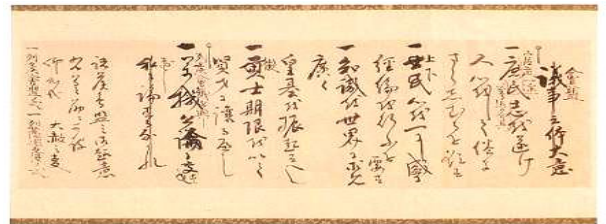 會盟
議事之体大意
一庶民志を遂け
人心をして倦まさ
らしむるを欲す
一士民心を一にし盛
上下
に経綸を行ふを要す
一知識を世界に求め
廣く
皇基を振起すへし
一貢士期限を以て
賢才に譲るへし
一万機公論に決し
私に論するなかれ
諸侯會盟之御趣意
右等之筋に可被
仰出哉 大赦之事
一列侯會盟之式 一列藩巡見之式